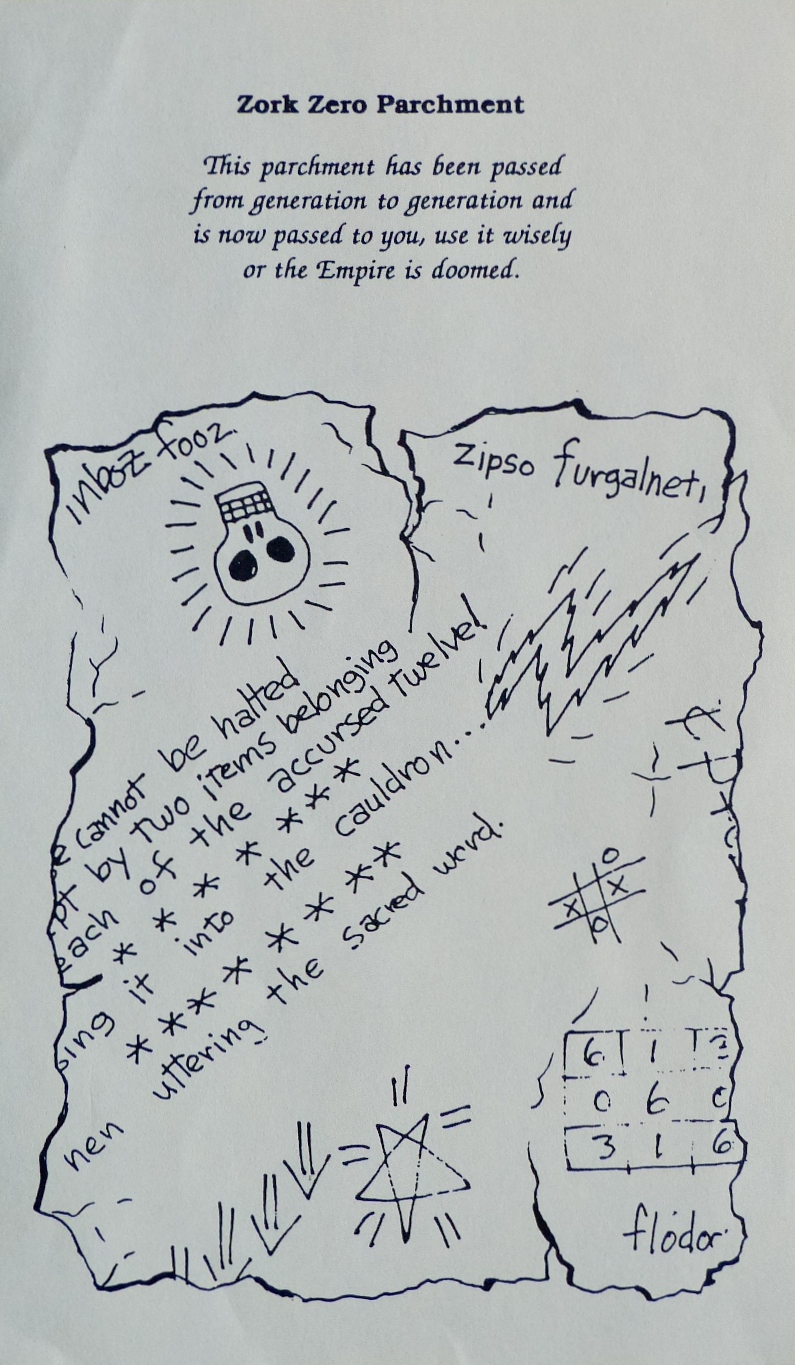 Zork Zero Parchment
This parchment has been passed
from generation to generation and
is now passed to you, use it wisely
or the Empire is doomed.
inboz fooz.
zipso furgalneti
e cannot be halted
pt by two items belonging
each of the accursed twelve!
* * * * * * *
sing it into the cauldron...
* * * * * * * *
nen uttering the sacred word.
O
X X
O
6 1 3
0 6 0
3 1 6
flodor